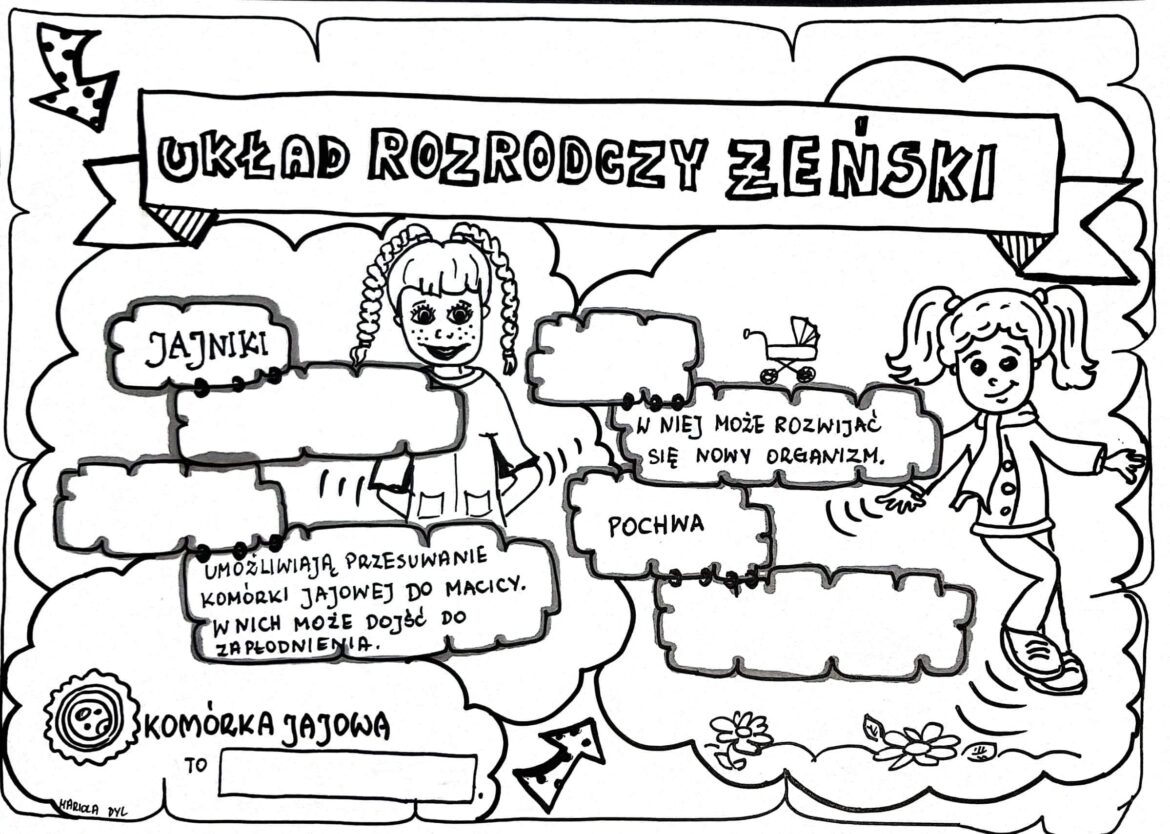 UKŁAD ROZRODCZY ŻEŃSKI
JAJNIKI
UMOŻLIWIAJĄ PRZESUWANIE
KOMÓRKI JAJOWEJ DO MACICY.
W NICH MOŻE DOJŚĆ DO
ZAPŁODNIENIA.
KOMÓRKA JAJOWA
TO
.
W NIEJ MOŻE ROZWIJAĆ
SIĘ NOWY ORGANIZM.
POCHWA
MARIOLA DYL